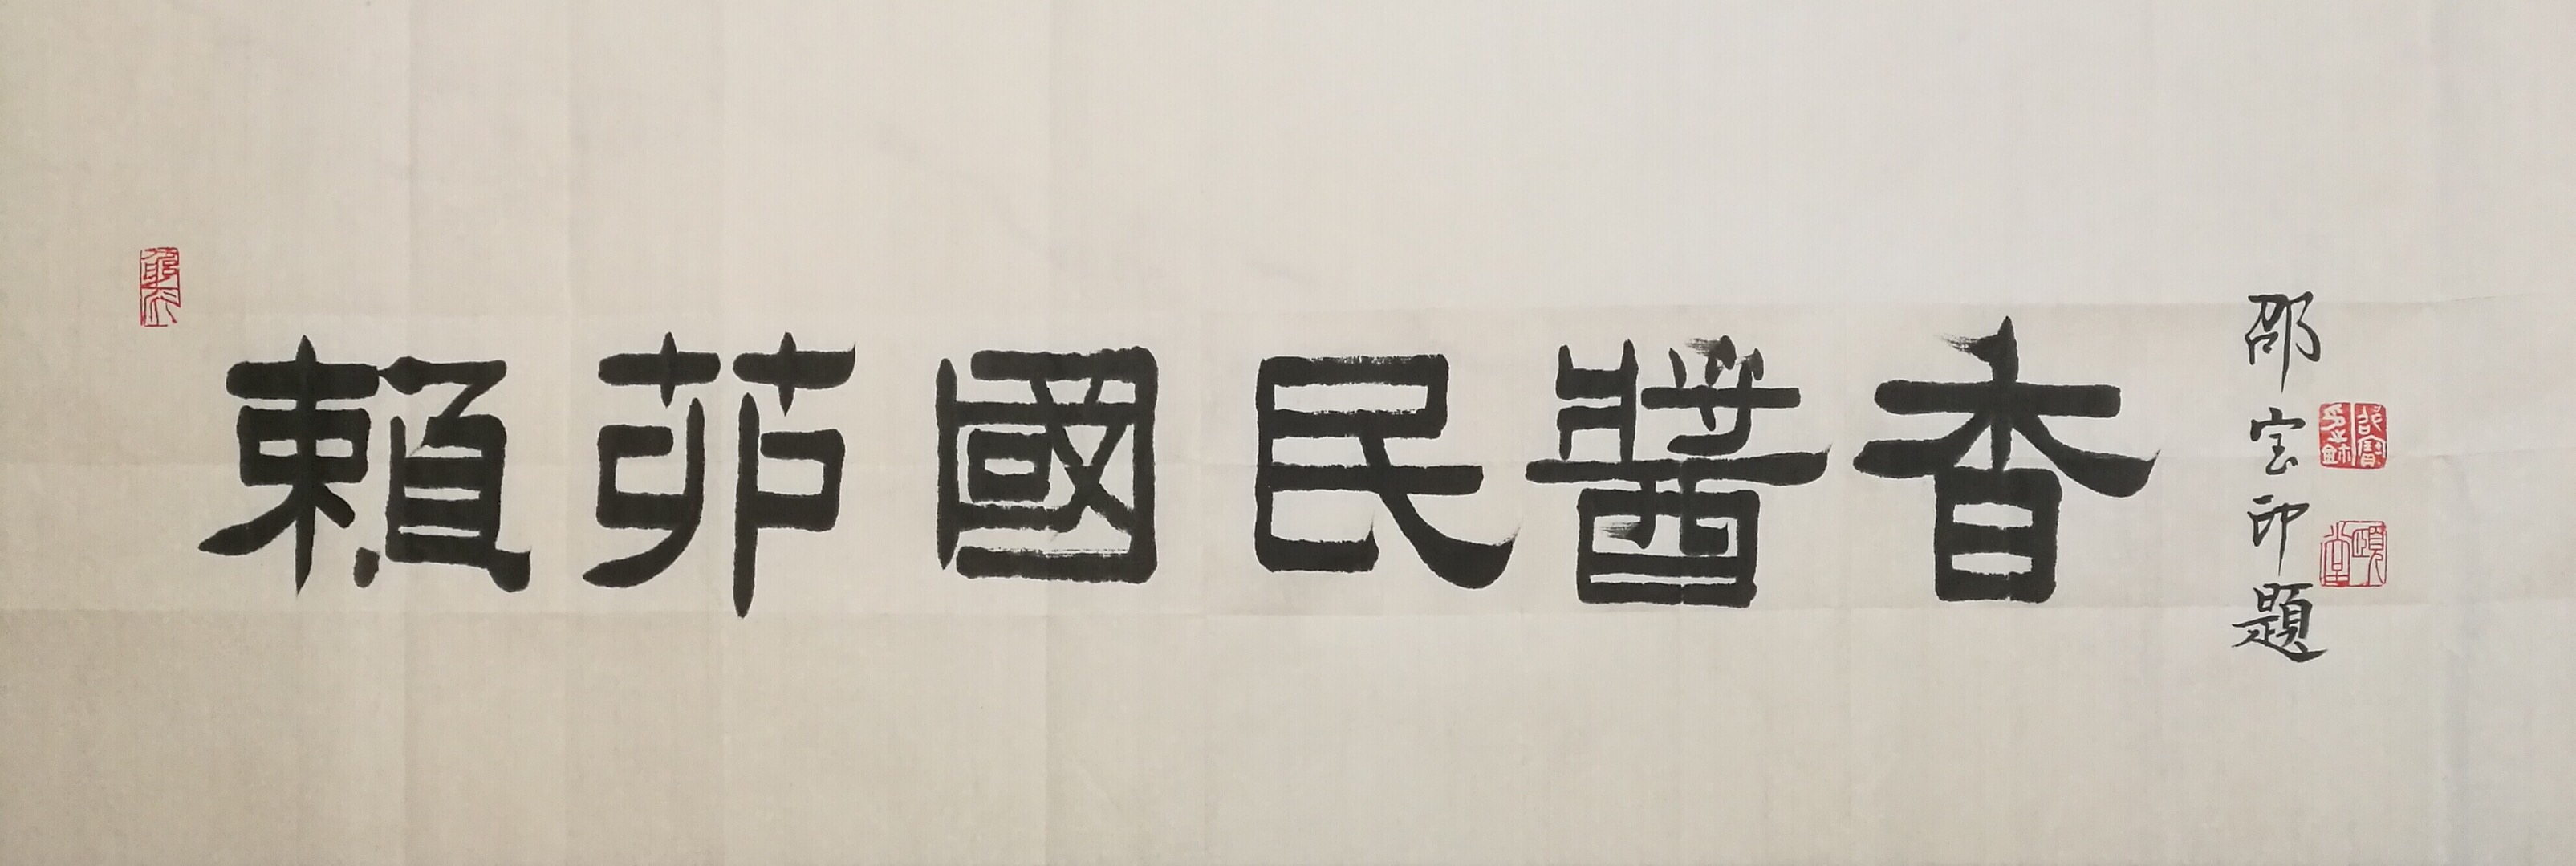 賴茆國民醬香
邵宝印題